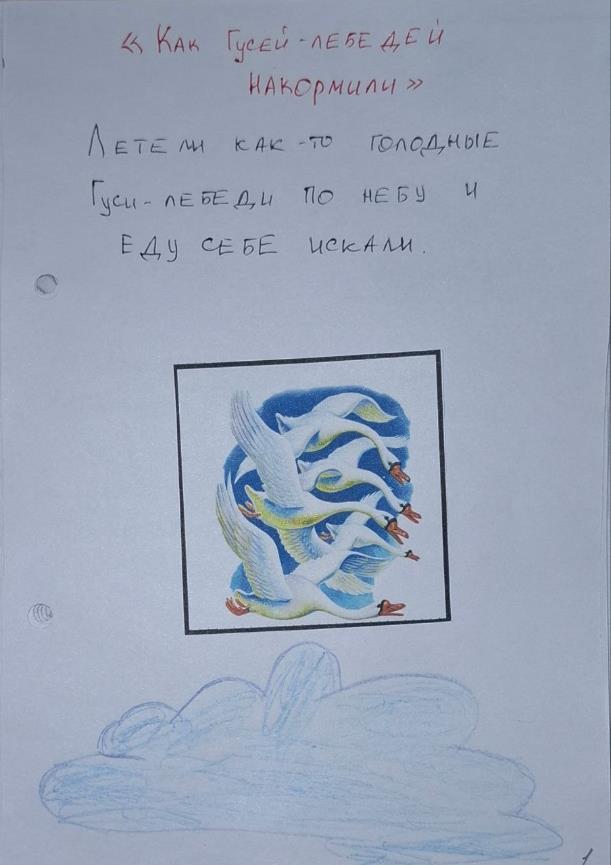 « Как Гусей-лебедей
накормили »
Летели как-то голодные
Гуси-лебеди по небу и
еду себе искали.
1